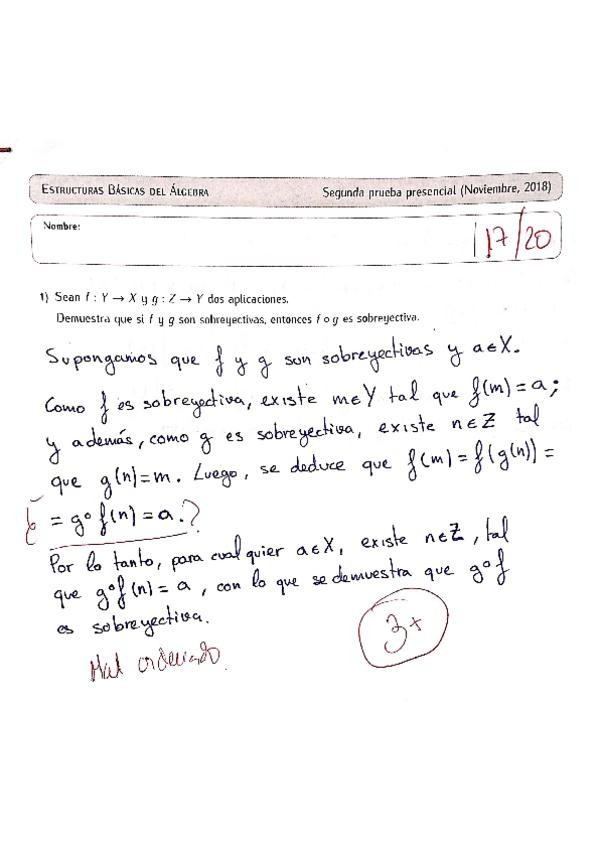 ESTRUCTURAS BÁSICAS DEL ÁLGEBRA Segunda prueba presencial (Noviembre, 2018)
Nombre: 17/20
1) Sean f : Y → X y g : Z → Y dos aplicaciones.
Demuestra que si f y g son sobreyectivas, entonces f o g es sobreyectiva.
Supongamos que f y g son sobreyectivas y a∈X.
Como f es sobreyectiva, existe m∈Y tal que f(m)=a;
y además, como g es sobreyectiva, existe n∈Z tal
que g(n)=m. Luego, se deduce que f(m)=f(g(n))=
= g∘f(n)=a.?
Por lo tanto, para cualquier a∈X, existe n∈Z, tal
que g∘f(n)=a, con lo que se demuestra que g∘f
es sobreyectiva.
3+
Mal ordenado.